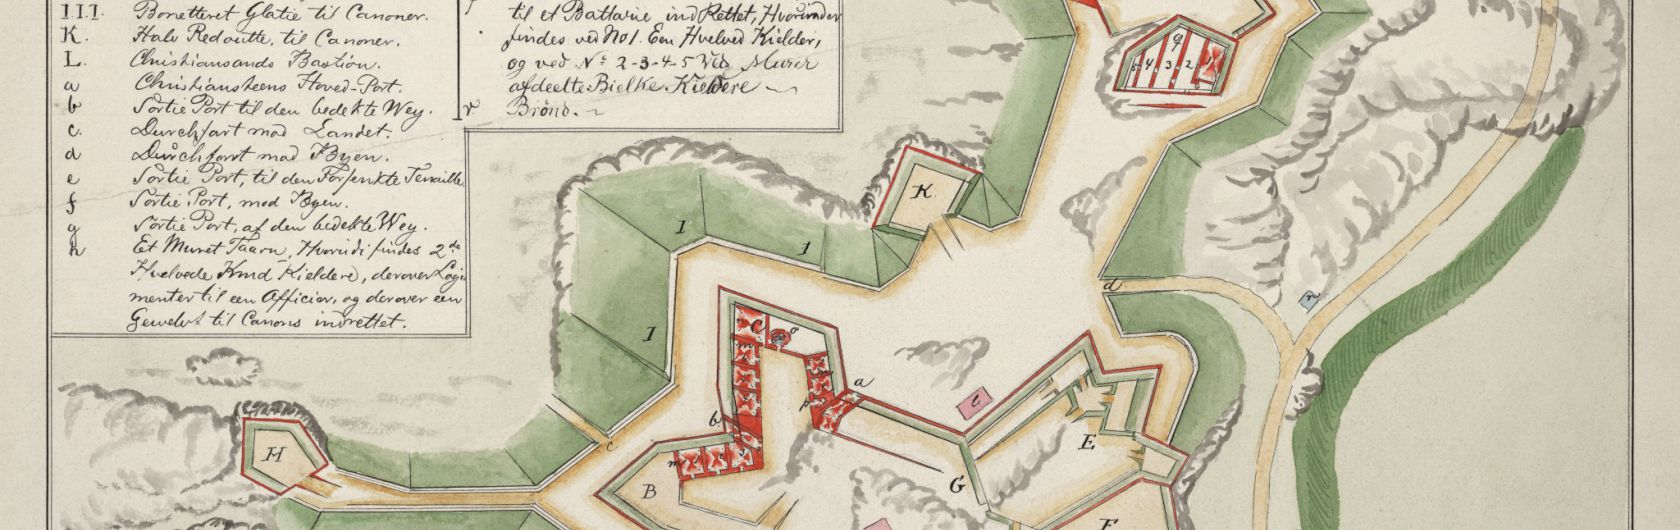 III. Bonetteret Glatie til Canoner.
K. Halv Redoutte, til Canoner.
L. Christiansands Bastion.
a Christiansteens Hoved-Port.
b Sortie Port til den bedekte Wey.
c. Durchfart mod Landet.
d Durchfart mod Byen.
e Sortie Port, til den Forsenkte Tenaille.
f Sortie Port, mod Byen.
g Sortie Port, af den bedekte Wey.
h Et Muret Taarn, Hvorudi findes 2de
Hvelvede Krud Kieldere, derover Logi
menter til een Officier, og derover een
til Canons indrettet.
til et Battarie indRettet, Hvorunder
findes ved No 1. Een Hvelved Kielder,
og ved No 2-3-4-5 Ved Murer
afdeelte Bielke Kieldere
r. Brönd.
q
5 4 3 2 1
K.
1
1
1
d
r
C
o
a
e
b
c
H
E
m
B
G
F